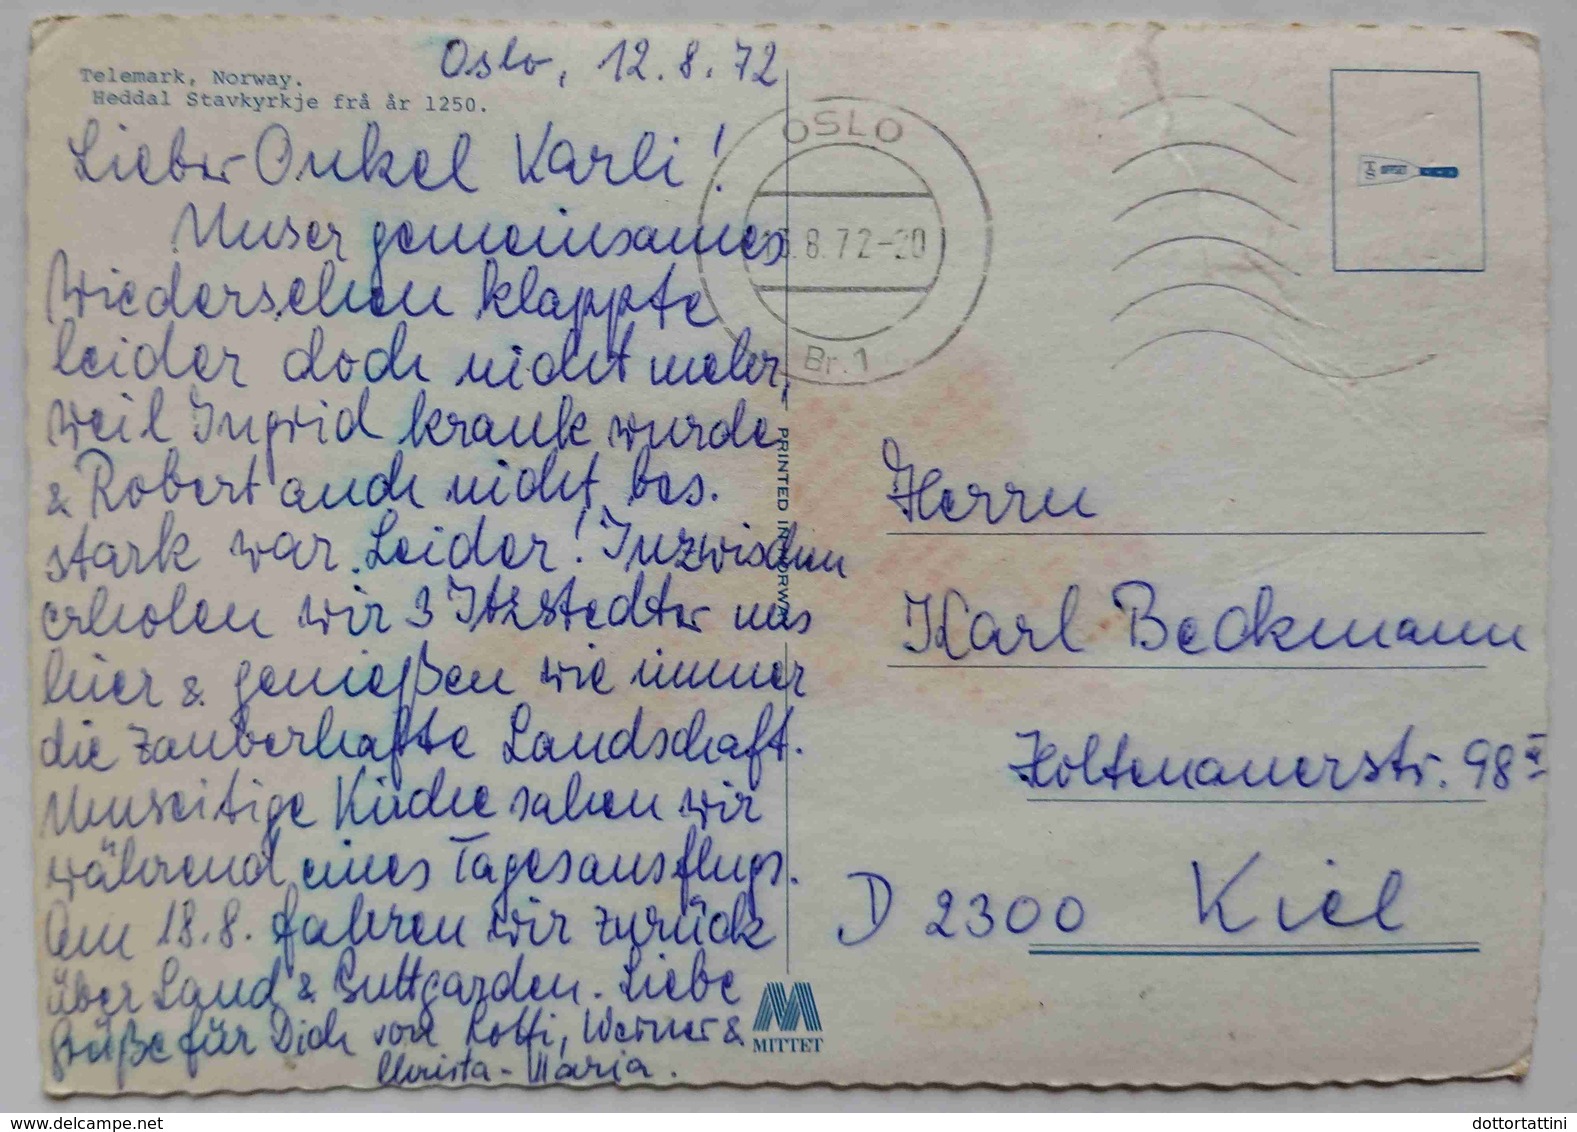 Telemark, Norway.
Heddal Stavkyrkje frå år 1250.
Oslo, 12.8.72
Lieber Onkel Karli!
Unser gemeinsames
Wiedersehen klappte
leider doch nicht mehr,
weil Ingrid krank wurde
& Robert auch nicht bes.
stark war. Leider! Inzwischen
erholen wir 3 Itzstedter uns
hier & genießen wie immer
die zauberhafte Landschaft.
Umseitige Kirche sahen wir
während eines Tagesausflugs.
Am 18.8. fahren wir zurück
über Land & Puttgarden. Liebe
Grüße für Dich von Rolfi, Werner &
Christa-Maria.
OSLO
8.72-20
Br. 1
PRINTED IN NORWAY
MITTET
Herrn
Karl Beckmann
Holtenauerstr. 98
D 2300 Kiel
dottortattini
www.delcampe.net